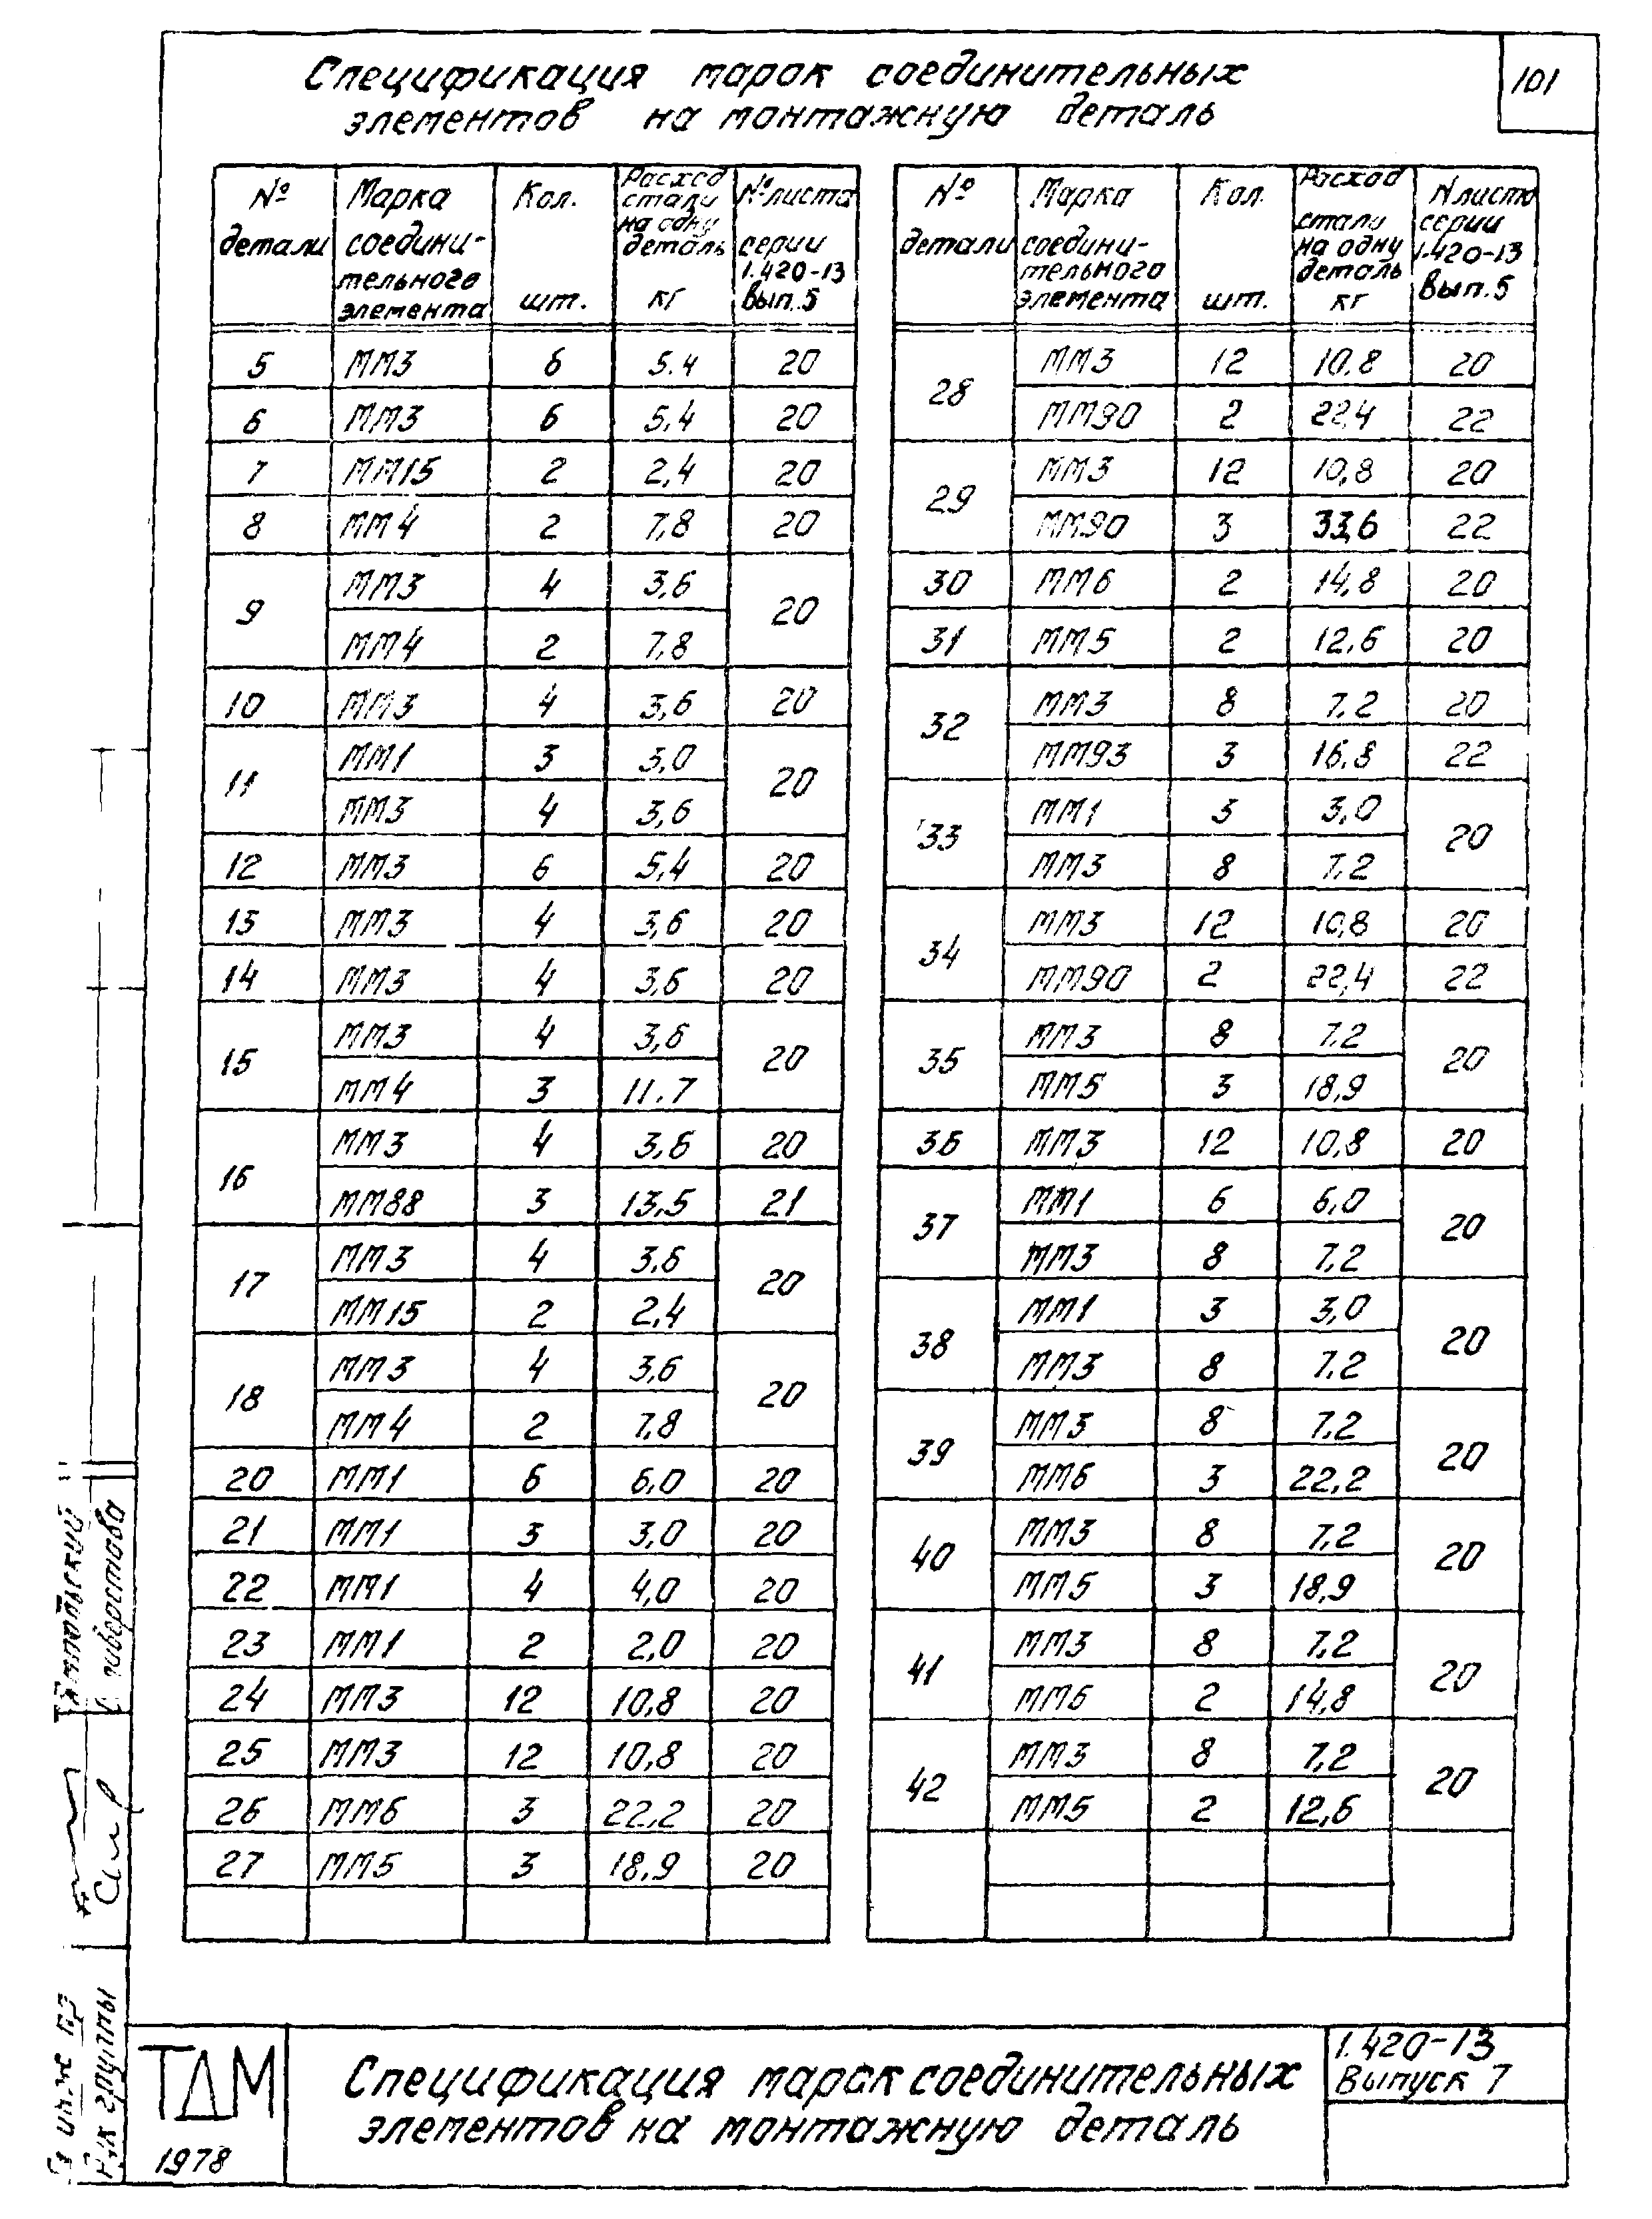 Спецификация марок соединительных
элементов на монтажную деталь
101
№ детали Марка соедини-тельного элемента Кол. шт. Расход стали на одну деталь кг № листа серии 1.420-13 Вып.5
5 ММ3 6 5.4 20
6 ММ3 6 5,4 20
7 ММ15 2 2,4 20
8 ММ4 2 7,8 20
9 ММ3 4 3,6 20
ММ4 2 7,8
10 ММ3 4 3,6 20
11 ММ1 3 3,0 20
ММ3 4 3,6
12 ММ3 6 5,4 20
13 ММ3 4 3,6 20
14 ММ3 4 3,6 20
15 ММ3 4 3,6 20
ММ4 3 11.7
16 ММ3 4 3,6 20
ММ88 3 13,5 21
17 ММ3 4 3,6 20
ММ15 2 2,4
18 ММ3 4 3,6 20
ММ4 2 7,8
20 ММ1 6 6,0 20
21 ММ1 3 3,0 20
22 ММ1 4 4,0 20
23 ММ1 2 2,0 20
24 ММ3 12 10,8 20
25 ММ3 12 10,8 20
26 ММ6 3 22,2 20
27 ММ5 3 18,9 20
№ детали Марка соедини-тельного элемента Кол. шт. Расход стали на одну деталь кг N листа серии 1.420-13 Вып.5
28 ММ3 12 10,8 20
ММ90 2 22,4 22
29 ММ3 12 10,8 20
ММ90 3 33,6 22
30 ММ6 2 14,8 20
31 ММ5 2 12,6 20
32 ММ3 8 7,2 20
ММ93 3 16,8 22
33 ММ1 3 3,0 20
ММ3 8 7,2
34 ММ3 12 10,8 20
ММ90 2 22,4 22
35 ММ3 8 7.2 20
ММ5 3 18,9
36 ММ3 12 10,8 20
37 ММ1 6 6,0 20
ММ3 8 7,2
38 ММ1 3 3,0 20
ММ3 8 7.2
39 ММ3 8 7,2 20
ММ6 3 22,2
40 ММ3 8 7,2 20
ММ5 3 18,9
41 ММ3 8 7,2 20
ММ6 2 14,8
42 ММ3 8 7,2 20
ММ5 2 12,6
Рук группы
ТДМ
1978
Спецификация марок соединительных
элементов на монтажную деталь
1.420-13
Выпуск 7